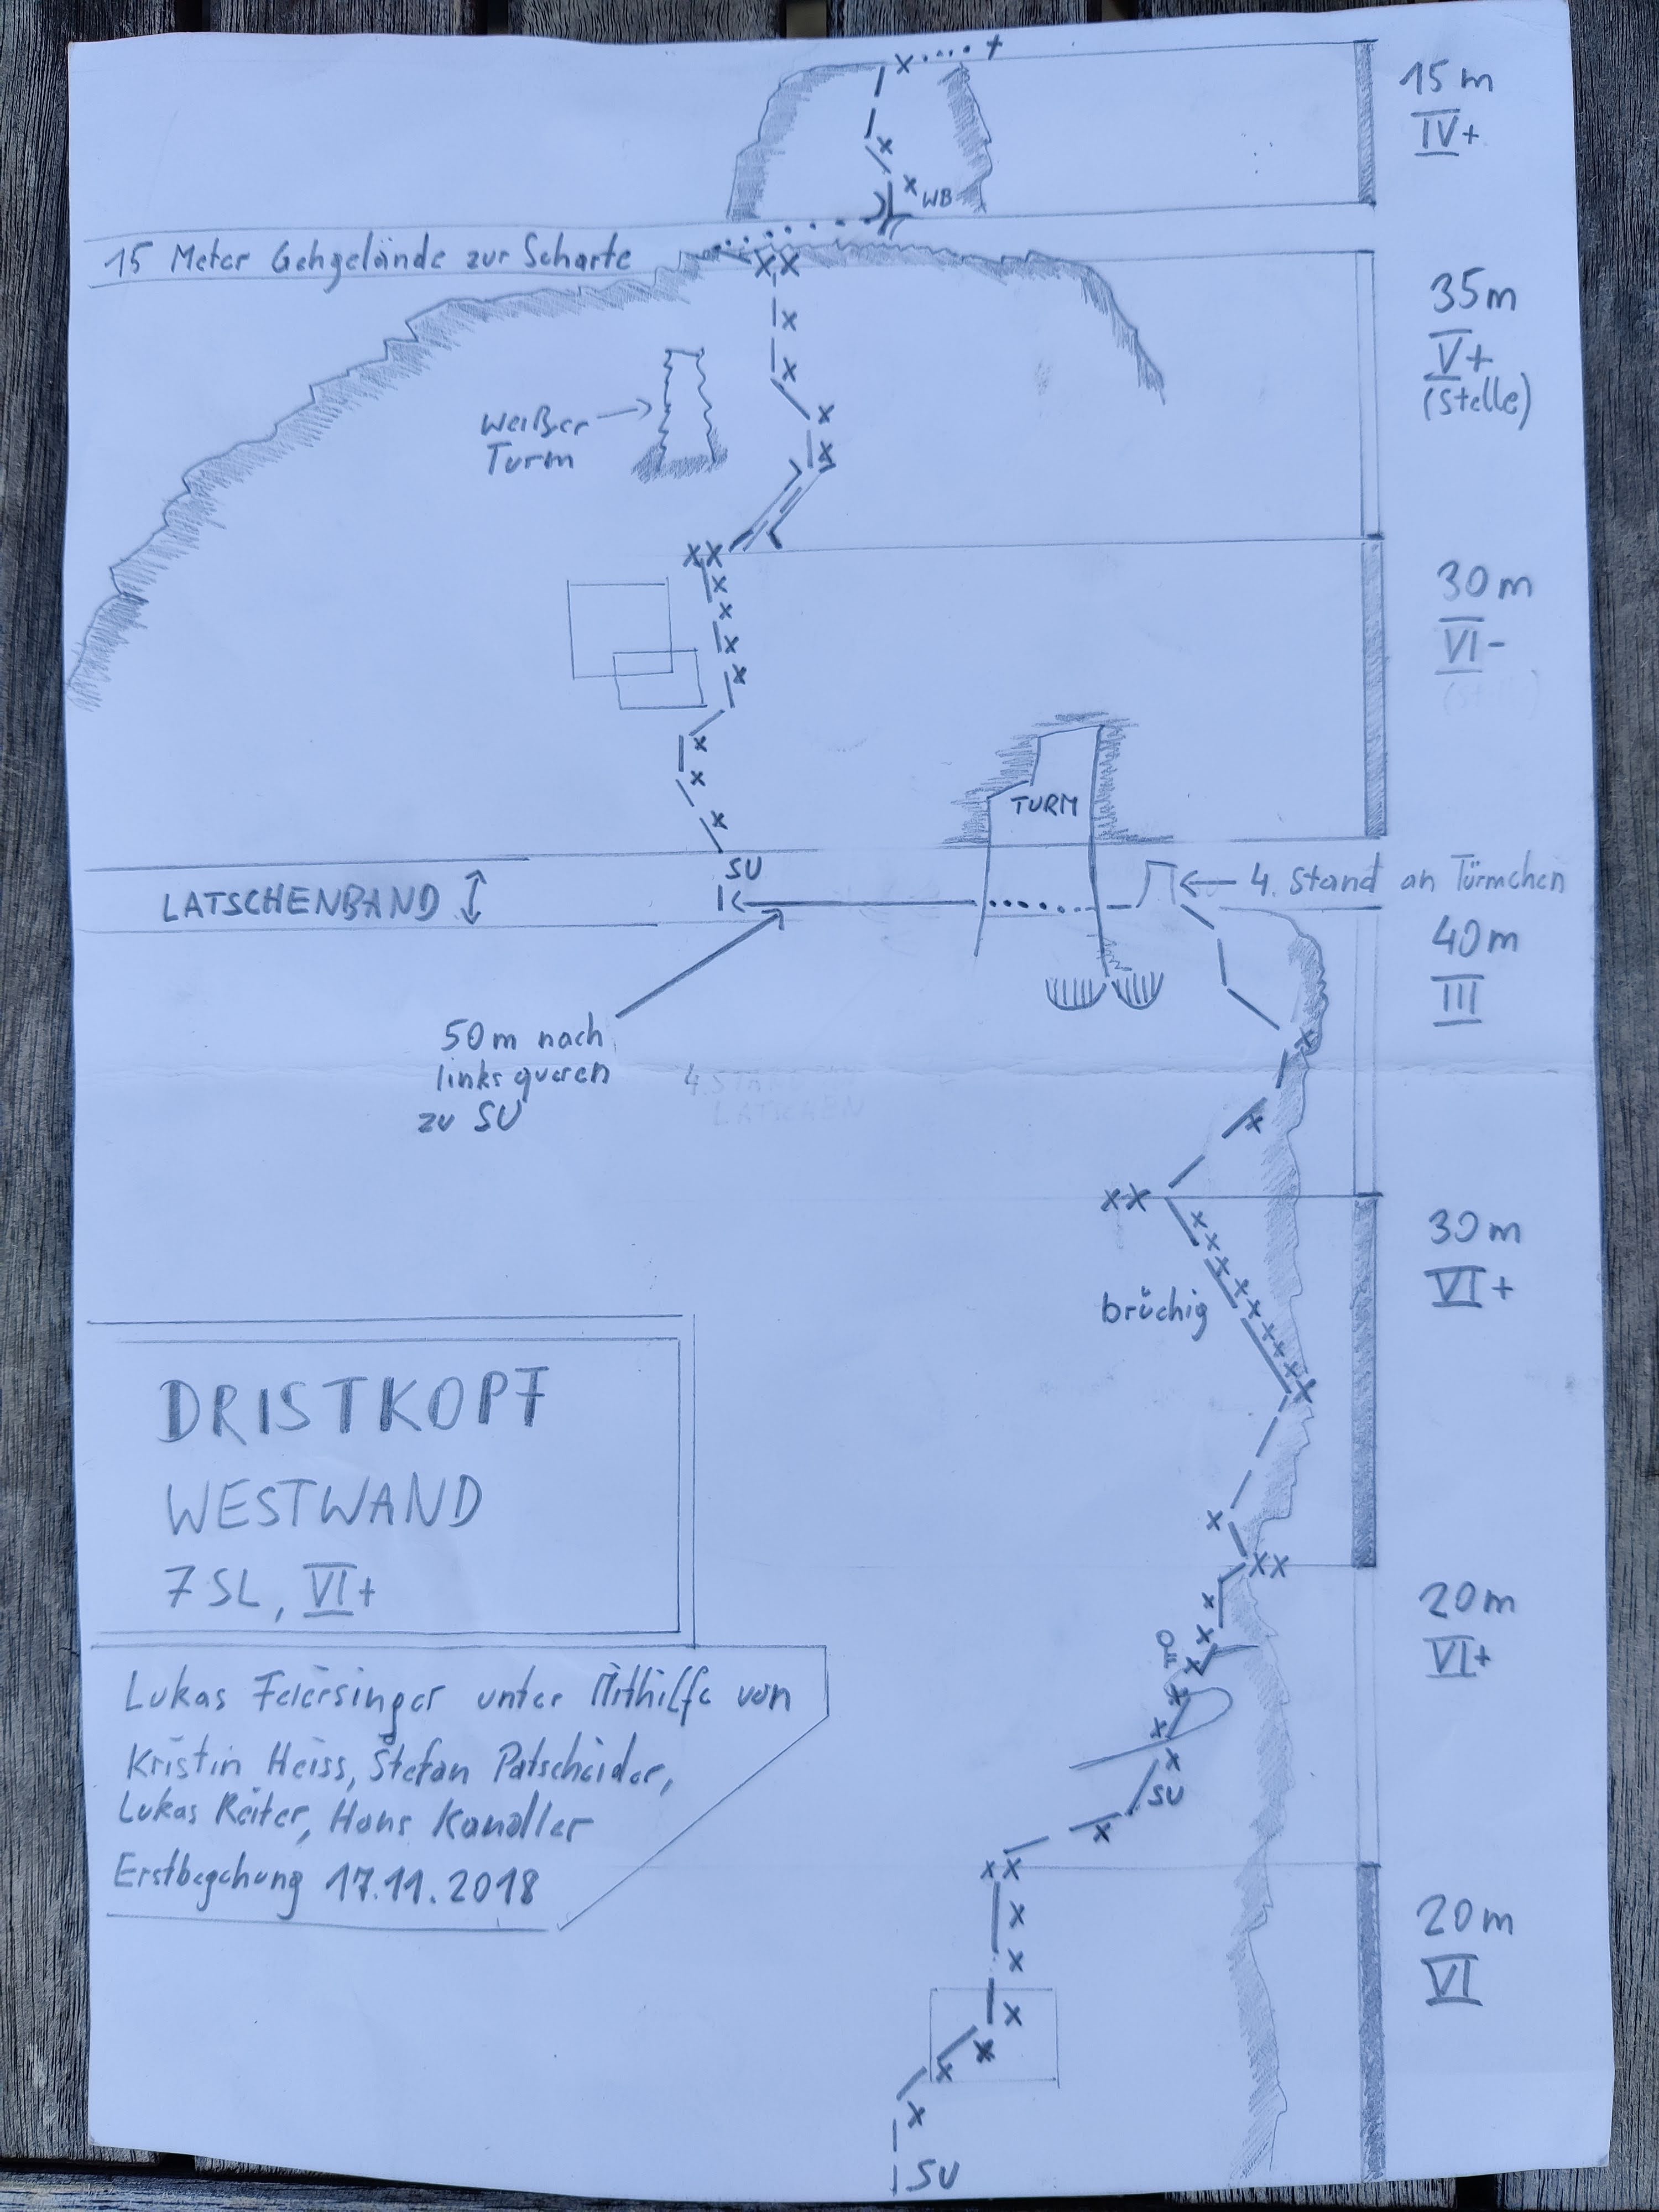 15m
IV+
WB
15 Meter Gehgelände zur Scharte
35m
V+
(Stelle)
Weißer
Turm
30m
VI-
TURM
SU
LATSCHENBAND
4. Stand an Türmchen
40m
III
50m nach
links queren
zu SU
4. STAND
LATSCHEN
30m
VI+
brüchig
DRISTKOPF
WESTWAND
7 SL, VI+
20m
VI+
Lukas Feiersinger unter Mithilfe von
Kristin Heiss, Stefan Patscheider,
Lukas Reiter, Hans Kandler
Erstbegehung 17.11.2018
SU
20m
VI
SU